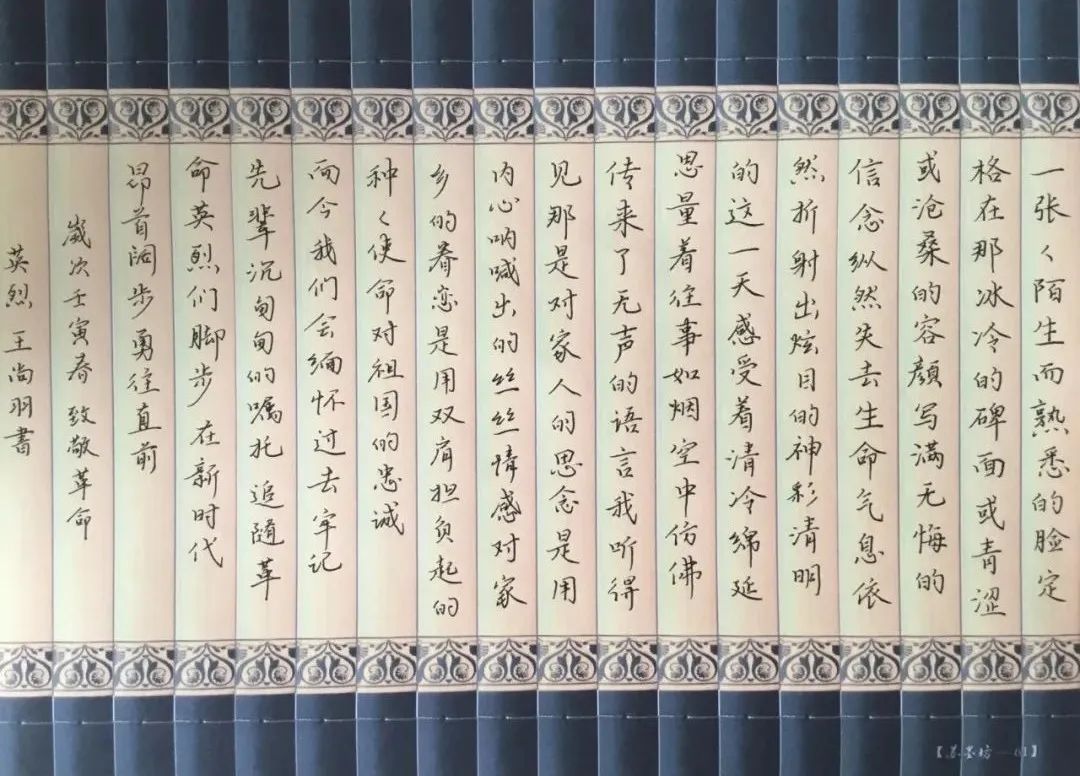 一张々陌生而熟悉的脸定
格在那冰冷的碑面或青涩
或沧桑的容颜写满无悔的
信念纵然失去生命气息依
然折射出炫目的神彩清明
的这一天感受着清冷绵延
思量着往事如烟空中仿佛
传来了无声的语言我听得
见那是对家人的思念是用
内心呐喊出的丝丝情感对家
乡的眷恋是用双肩担负起的
种々使命对祖国的忠诚
而今我们会缅怀过去牢记
先辈沉甸甸的嘱托追随革
命英烈们脚步在新时代
昂首阔步勇往直前
岁次壬寅春 致敬革命
英烈 王尚羽書
【墨坊—01】